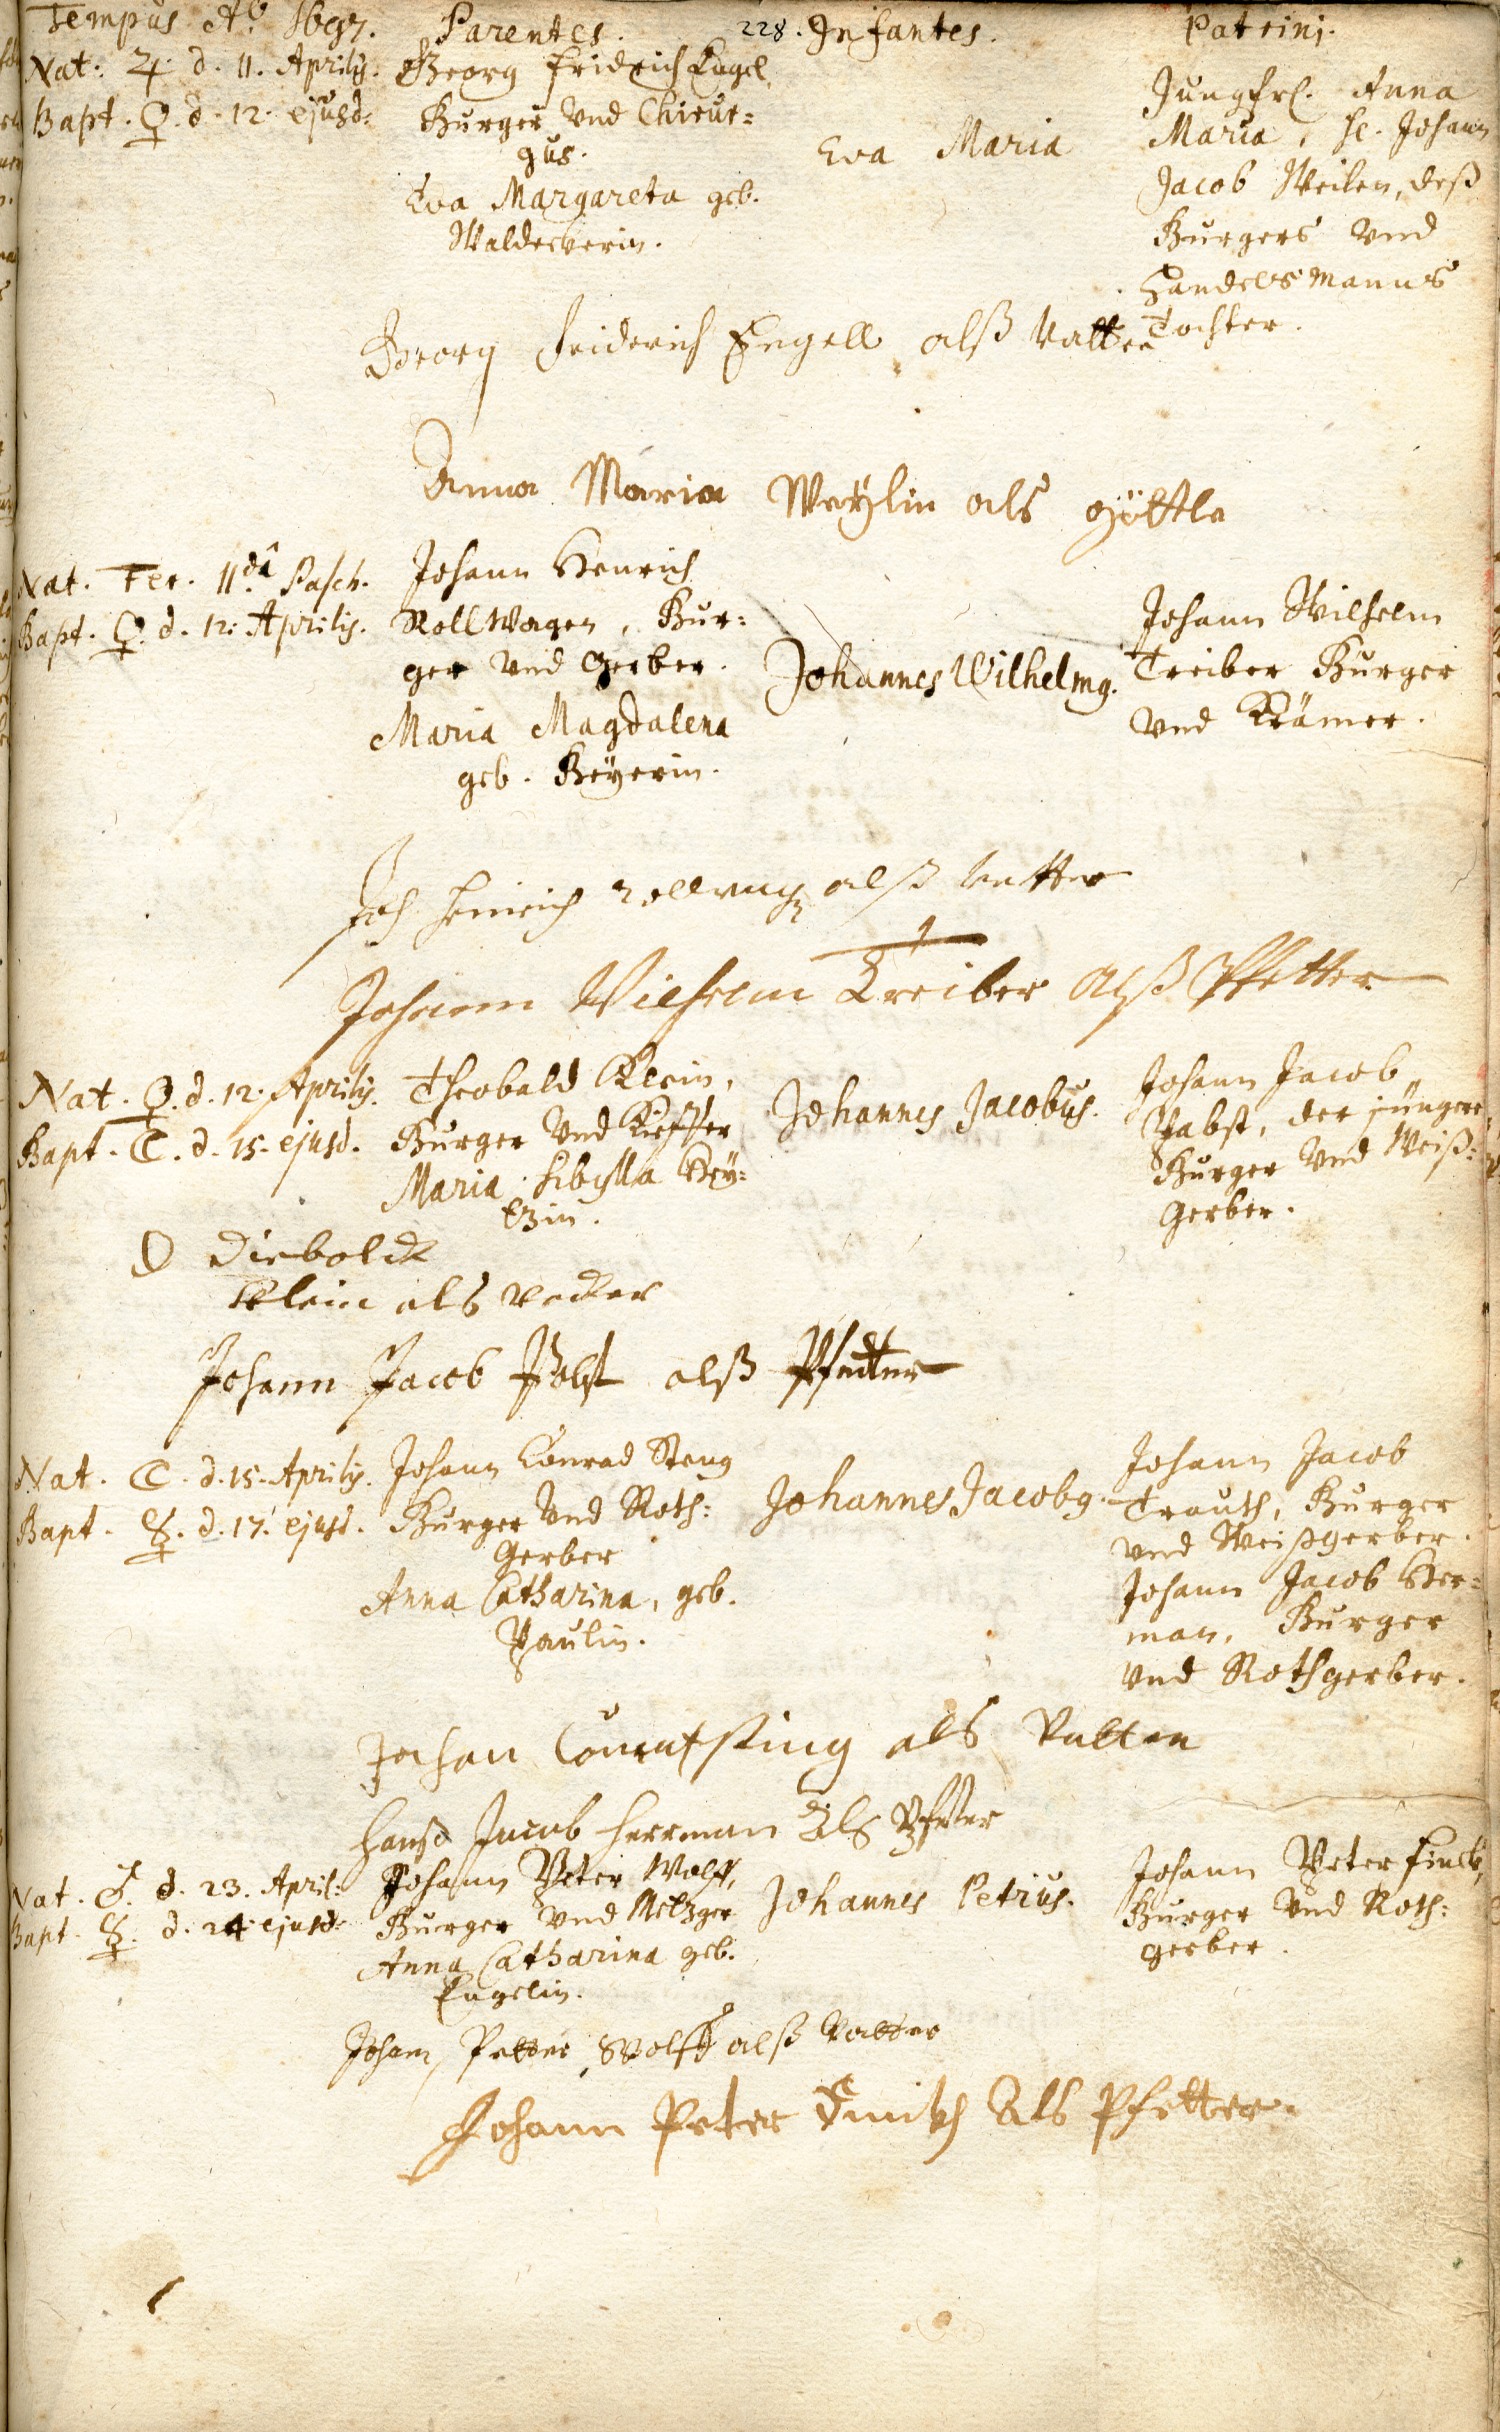 Tempus Aº 1697. Parentes. 228. Infantes. Patrini.
Nat: ♃. d. 11. Aprilis.
Bapt. ♀. d. 12. ejusd:
Georg Fridrich Engel
Burger und Chirur=
gus.
Eva Margareta geb.
Waldeckerin.
Eva Maria
Jungfr. Anna
Maria, H. Johann
Jacob Weilen, deß
Burgers und
Handelsmanns
Tochter.
Georg Friderich Engell alß Vatter
Anna Maria Weÿlin als göttle
Nat. Fer. IIdâ Pasch.
Bapt. ♀. d. 12. Aprilis.
Johann Henrich
Rollwagen, Bur=
ger und Gerber.
Maria Magdalena
geb. Beÿerin.
Johannes Wilhelmg.
Johann Wilhelm
Treiber Burger
und Krämer.
Joh Heinrich rollwag alß Vatter
Johann Wilhelm Treiber Alß Pfetter
Nat. ♀. d. 12. Aprilis.
Bapt. ☾. d. 15. ejusd.
Theobald Klein,
Burger und Kieffer
Maria Sibylla
Johannes Jacobus.
Johann Jacob
Pabst, der jüngere,
Burger und Weiß=
Gerber.
D Dieboldt
Klein als vatter
Johann Jacob Pabst alß Pfetter
Nat. ☾. d. 15. Aprilis.
Bapt. ☿. d. 17. ejusd.
Johann Conrad Steng
Burger und Roth=
Gerber
Anna Catharina, geb.
Paulin.
Johannes Jacobg.
Johann Jacob
Trauth, Burger
und Weißgerber.
Johann Jacob Her=
man, Burger
und Rothgerber.
Johan als Vatter
Hanß Jacob Herrman Als Pfetter
Nat. ♂. d. 23. April:
Bapt. ☿. d. 24. ejusd:
Johann Peter Wolff,
Burger und Metzger
Anna Catharina geb.
Engelin.
Johannes Petrus.
Johann Peter Finck,
Burger und Roth=
gerber.
Johann Petter Wolff alß Vatter
Johann Peter Als Pfetter.